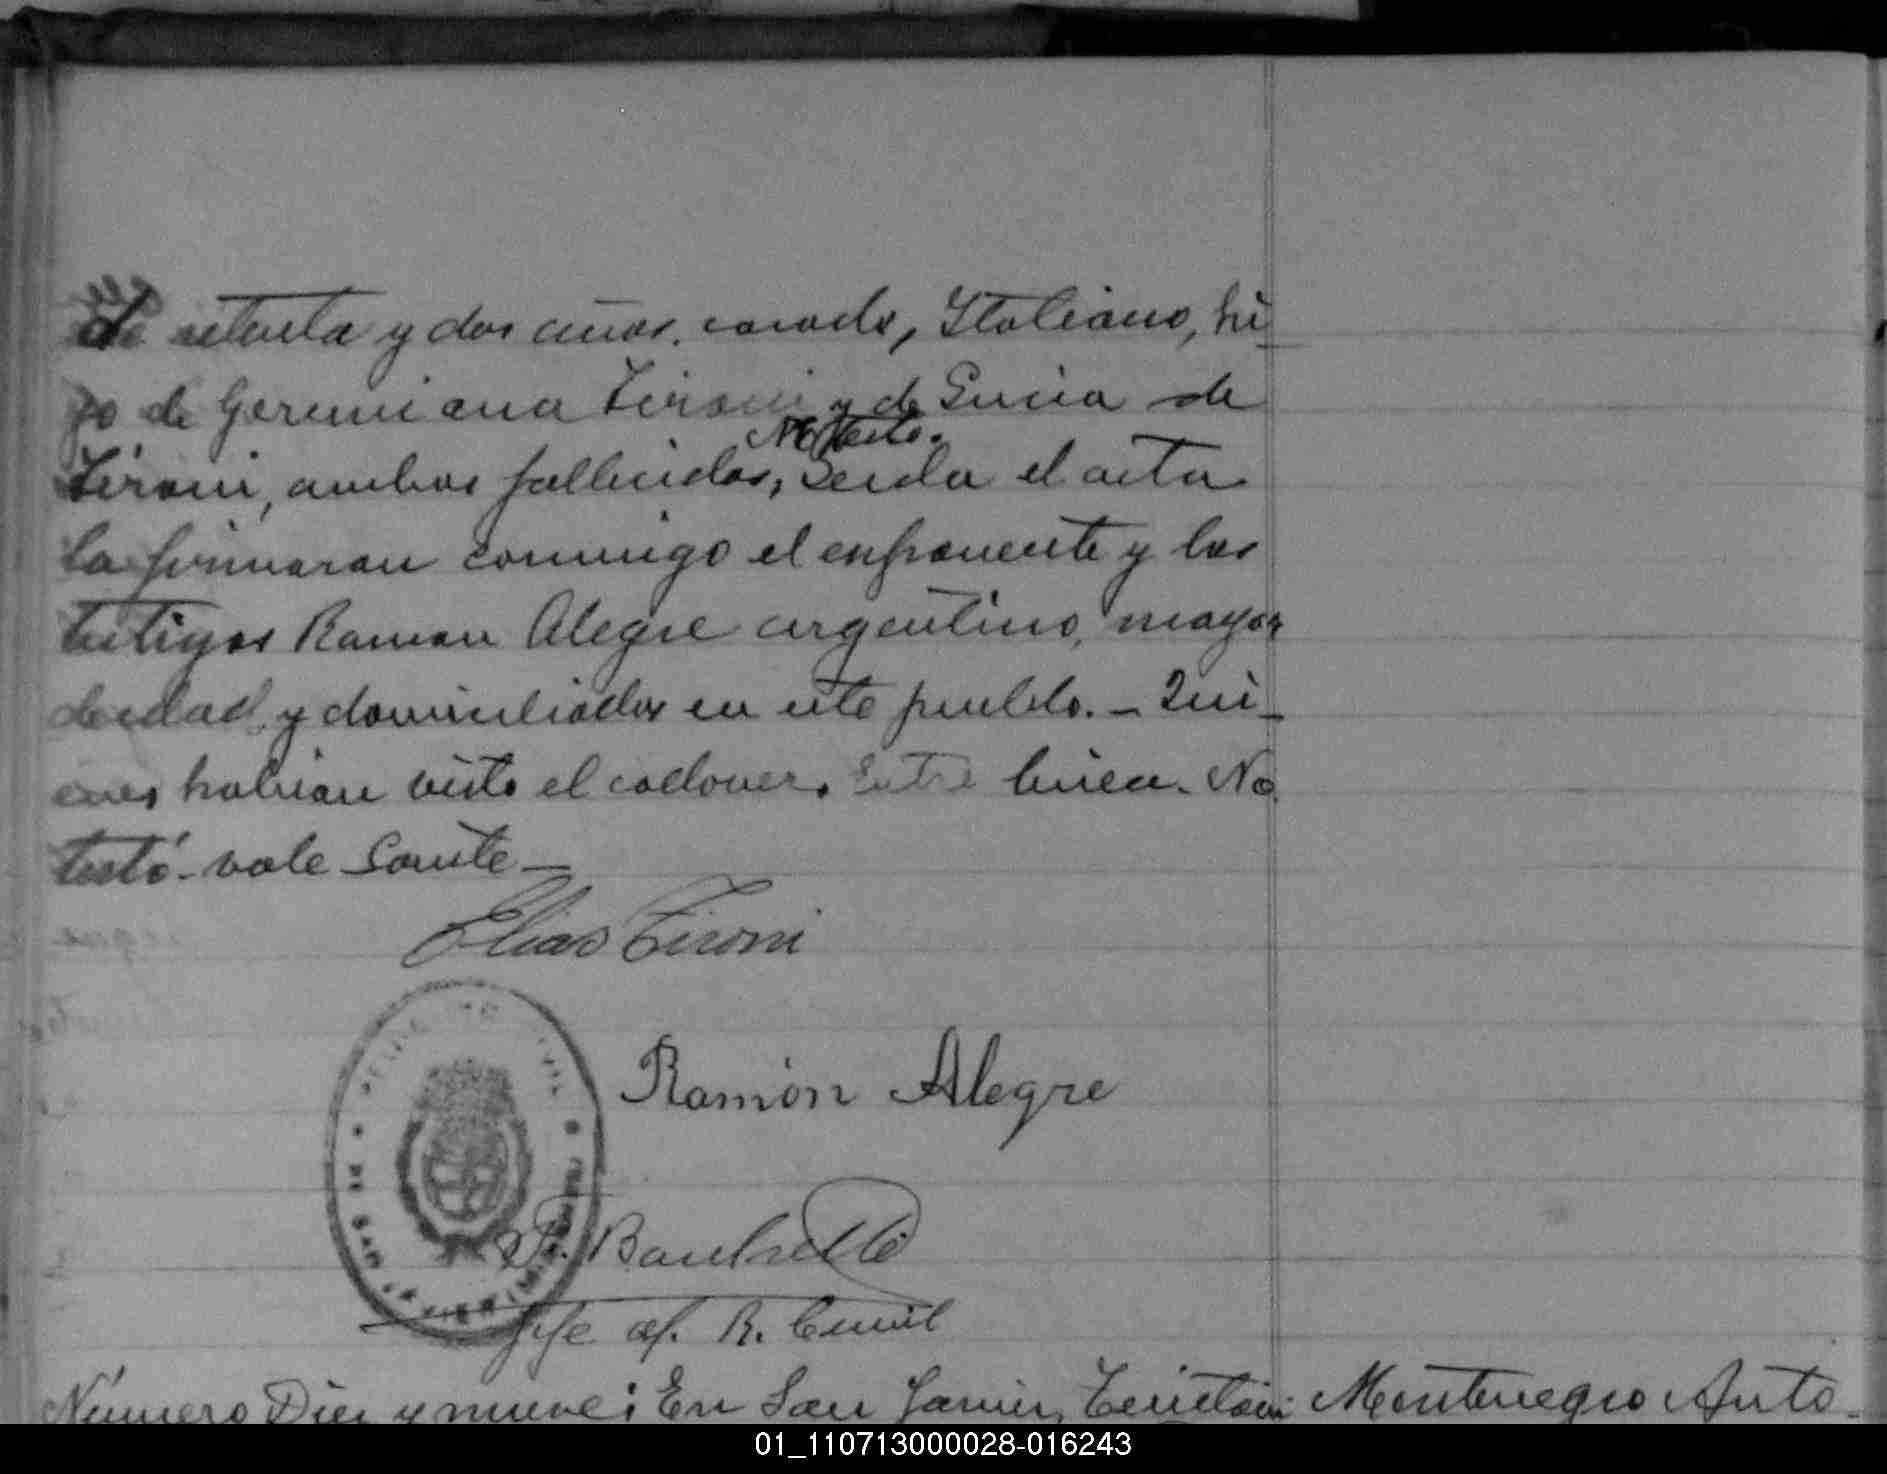 de setenta y dos años. casado, Italiano, hi-
jo de Geremiana Tironi y de Lucia de
No testó.
Tironi, ambos fallecidos, Leida el acta
la firmaran conmigo el exponente y los
testigos Ramon Alegre argentino, mayor
de edad y domiciliados en este pueblo. - Qui-
enes habian visto el cadaver. Entre linea. No
testó - vale Conste -
Elias Tironi
Ramón Alegre
Jefe of. R. Civil
DE SAN
Número Diez y nueve: En San Javier, Territori
Montenegro Anto-
01_110713000028-016243